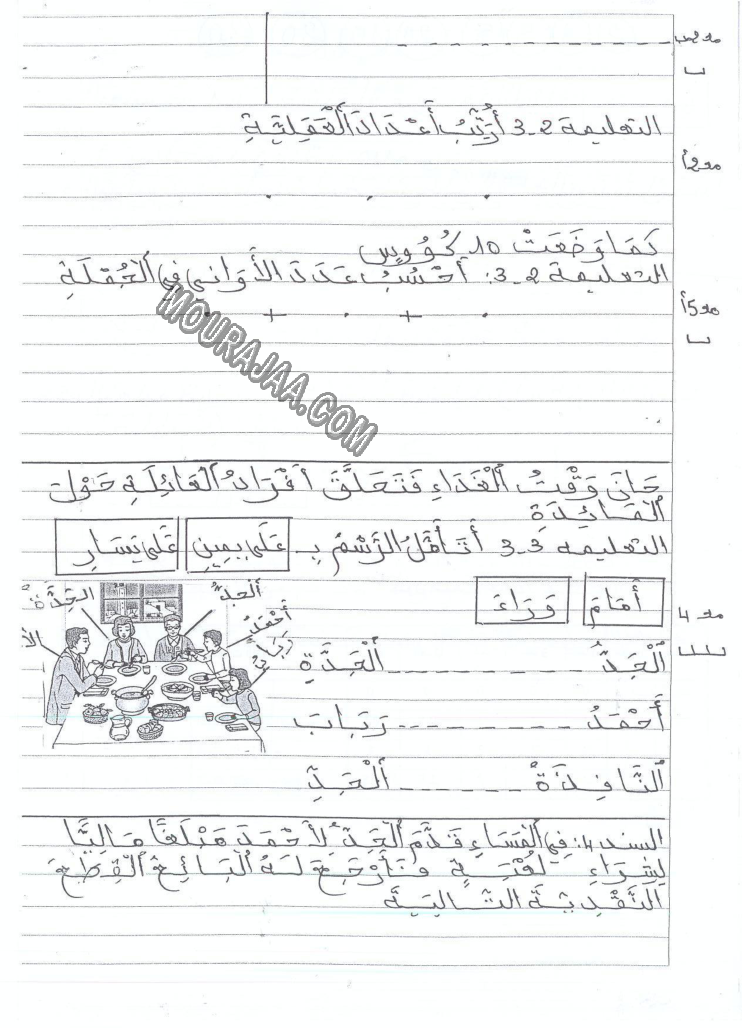 مع2ب
التعليمة 2-3 أُرَتِّبُ أَعْدَادَ الْعَمَلِيَّةِ
مع2أ
كَمَا وَضَعَتْ 10 كُؤُوسٍ
التعليمة 2-3: أَحْسُبُ عَدَدَ الأَوَانِي فِي الْجُمْلَةِ
مع5أ
. + . + .
MOURAJAA.COM
حَانَ وَقْتُ الْغَدَاءِ فَتَحَلَّقَ أَفْرَادُ الْعَائِلَةِ حَوْلَ
الْمَائِدَةِ
التعليمة 3-3 أَتَأَمَّلُ الرَّسْمَ بـ عَلَى يَمِينِ عَلَى يَسَارِ
أَمَامَ وَرَاءَ
مع4
الْجَدُّ
الجَدَّةُ
أَحْمَدُ
رَبَابُ
الأ
الْجَدُّ ---------- الْجَدَّةِ
أَحْمَدُ ---------- رَبَابَ
النَّافِذَةُ ------ الْجَدِّ
السند 4: فِي الْمَسَاءِ قَدَّمَ الْجَدُّ لأَحْمَدَ مَبْلَغًا مَالِيًّا
لِشِرَاءِ لُعْبَةٍ فَأَرْجَعَ لَهُ الْبَائِعُ الْقِطَعَ
النَّقْدِيَّةَ التَّالِيَةَ